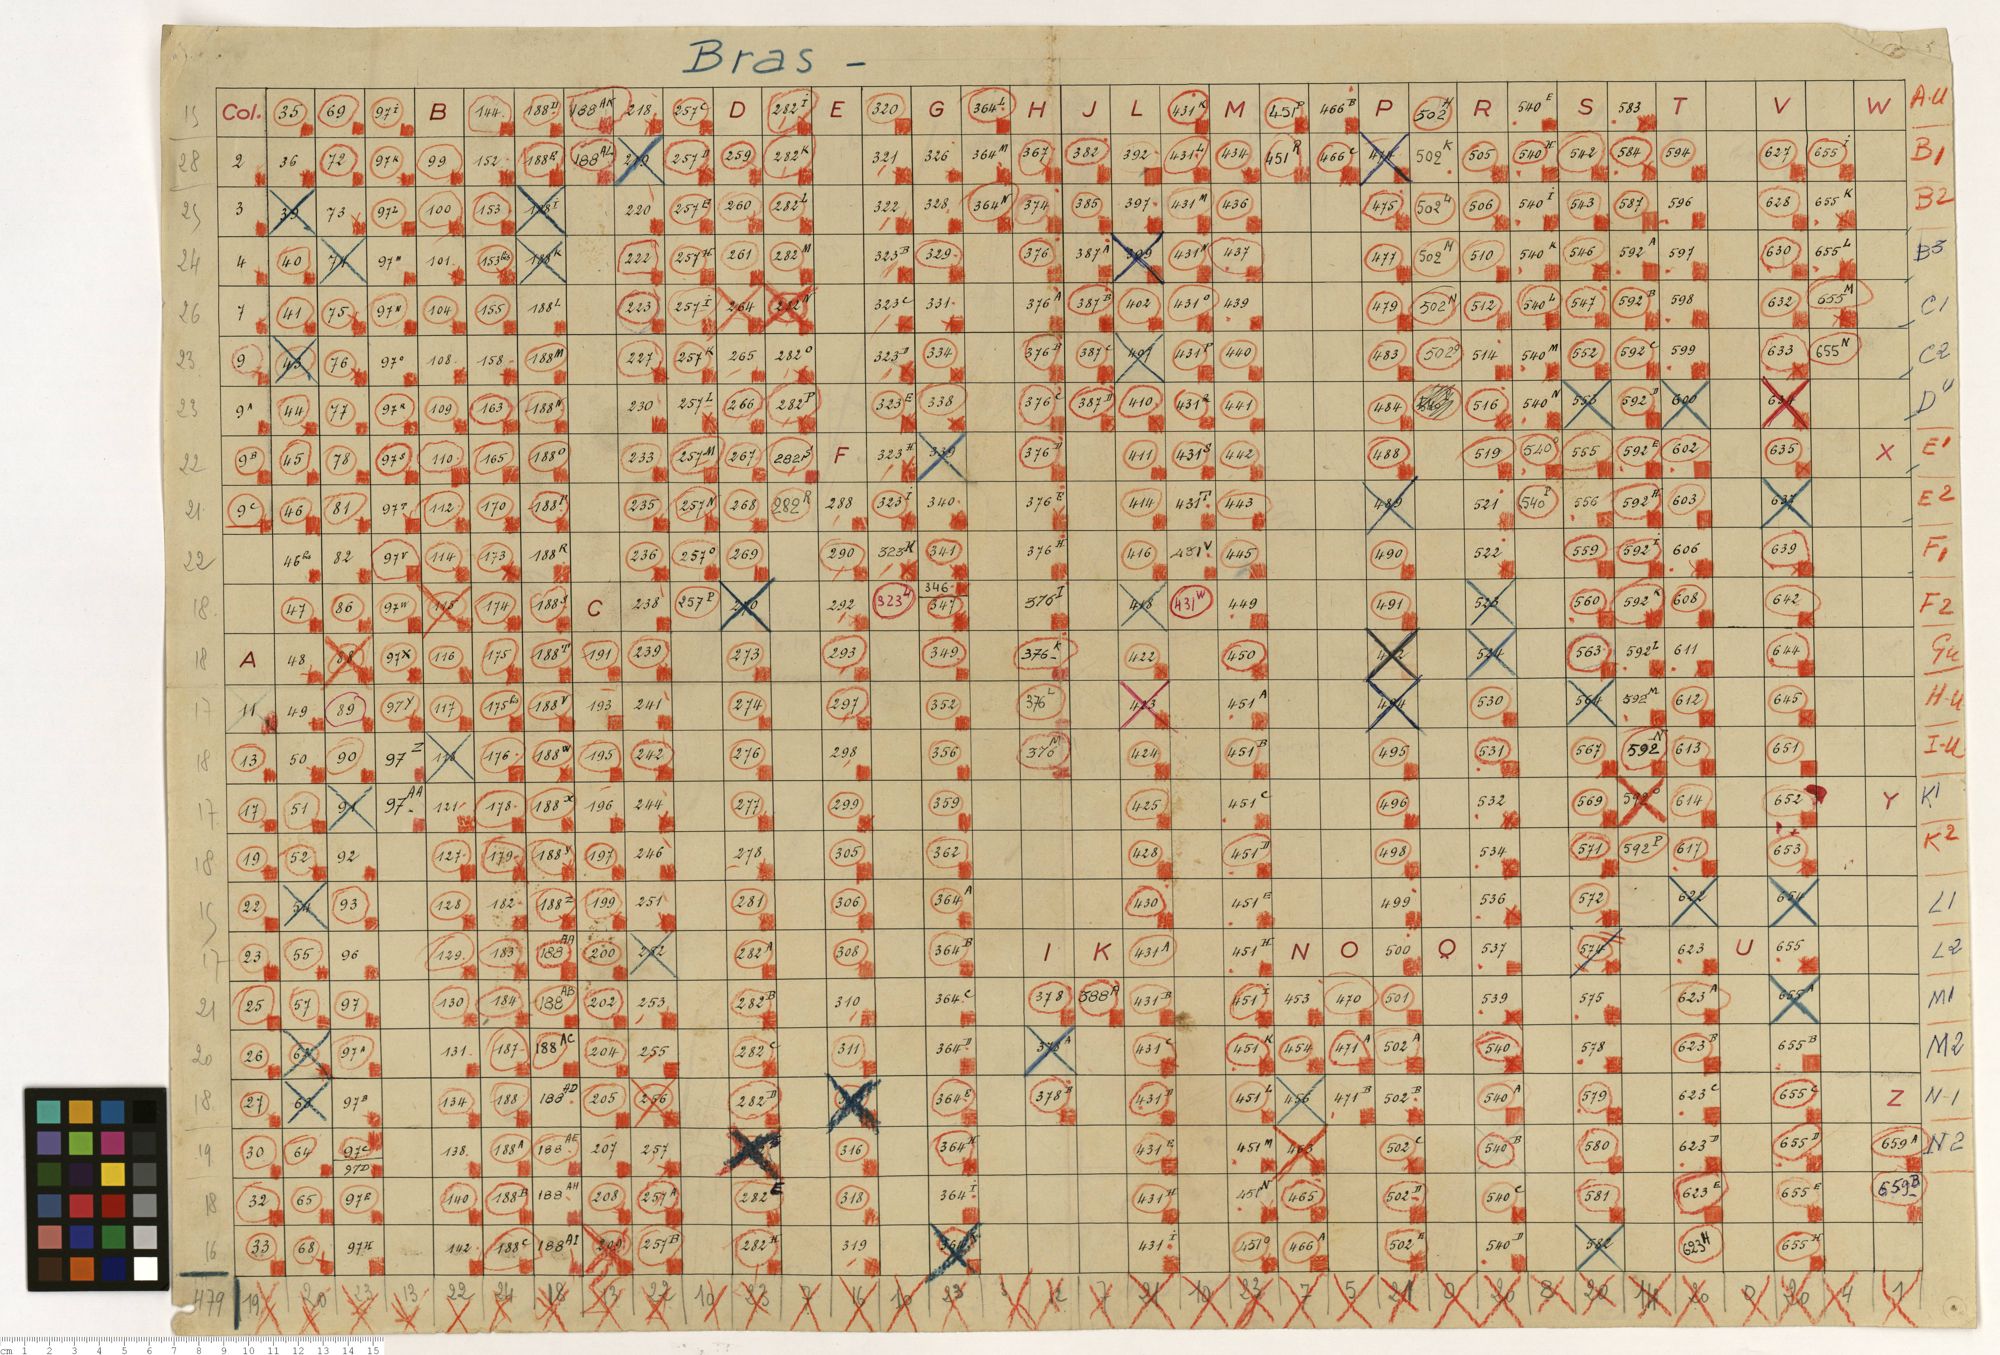 Bras -
15 Col. 35 69 97I B 144 188D 188AK 218 257C D 282I E 320 G 364L H J L 431K M 451P 466B P 502H R 540E S 583 T V W A-U
28 2 36 72 97K 99 152 188E 188AL 257D 259 282K 321 326 364M 367 382 392 431L 434 451R 466C 474 502K 505 540H 542 584 594 627 655I B1
25 3 39 73 97L 100 153 188I 220 257E 260 282L 322 328 364N 374 385 397 431M 436 475 502L 506 540I 543 587 596 628 655K B2
24 4 40 74 101 153bis 188K 222 257H 261 282M 323B 329 376 387A 399 431N 437 477 502M 510 540K 546 592A 597 630 655L B3
26 7 41 75 97N 104 155 188L 223 257I 264 282N 323C 331 376A 387B 402 431O 439 479 502N 512 540L 547 592B 598 632 655M C1
23 9 43 76 97O 108 158 188M 227 257K 265 282O 323D 334 376B 387C 407 431P 440 483 502O 514 540M 552 592C 599 633 655N C2
23 9A 44 77 97R 109 163 188N 230 257L 266 282P 323E 338 376C 387D 410 431R 441 484 516 540N 592D 600 634 D"
22 9B 45 78 97S 110 165 188O 233 257M 267 282S F 323H 339 376D 411 431S 442 488 519 540O 555 592E 602 635 X E1
21 9C 46 81 97T 112 170 188P 235 257N 268 282R 288 323I 340 376E 414 431T 443 489 521 540P 556 592H 603 637 E2
22 46bis 82 97V 114 173 188R 236 257O 269 290 323K 341 376H 416 431V 445 490 522 559 592I 606 639 F1
18 47 86 97W 115 174 188S C 238 257P 270 292 323L 346 347 376I 418 431W 449 491 523 560 592K 608 642 F2
18 A 48 88 97X 116 175 188T 191 239 273 293 349 376K 422 450 492 524 563 592L 611 644 G-U
17 11 49 89 97Y 117 175bis 188V 193 241 274 297 352 376L 423 451A 494 530 564 592M 612 645 H-U
18 13 50 90 97Z 118 176 188W 195 242 276 298 356 376M 424 451B 495 531 567 592N 613 651 I-U
17 17 51 91 97AA 121 178 188X 196 244 277 299 359 425 451C 496 532 569 592O 614 652 Y K1
18 19 52 92 127 179 188Y 197 246 278 305 362 428 451D 498 534 571 592P 617 653 K2
15 22 54 93 128 182 188Z 199 251 281 306 364A 430 451E 499 536 572 622 654 L1
17 23 55 96 129 183 188AA 200 252 282A 308 364B I K 431A 451H N O 500 Q 537 574 623 U 655 L2
21 25 57 97 130 184 188AB 202 253 282B 310 364C 378 388A 431B 451I 453 470 501 539 575 623A 655A M1
20 26 97A 131 187 188AC 204 255 282C 311 364D 378A 431C 451K 454 471A 502A 540 578 623B 655B M2
18 27 63 97B 134 188 188AD 205 256 282D 364E 378B 431D 451L 456 471B 502B 540A 579 623C 655C Z N-1
19 30 64 97C 97D 138 188A 188AE 207 257 316 364H 431E 451M 463 502C 540B 580 623D 655D 659A N2
18 32 65 97E 140 188B 188AH 208 257A 282E 318 364I 431H 451N 465 502D 540C 581 623E 655E 659B
16 33 68 97H 142 188C 188AI 209 257B 282H 319 364K 431I 451O 466A 502E 540D 582 623H 655H
479 19 20 23 13 22 24 18 13 22 10 23 7 16 10 23 3 12 7 21 10 23 7 5 21 9 20 8 20 20 20 4 1
cm 1 2 3 4 5 6 7 8 9 10 11 12 13 14 15